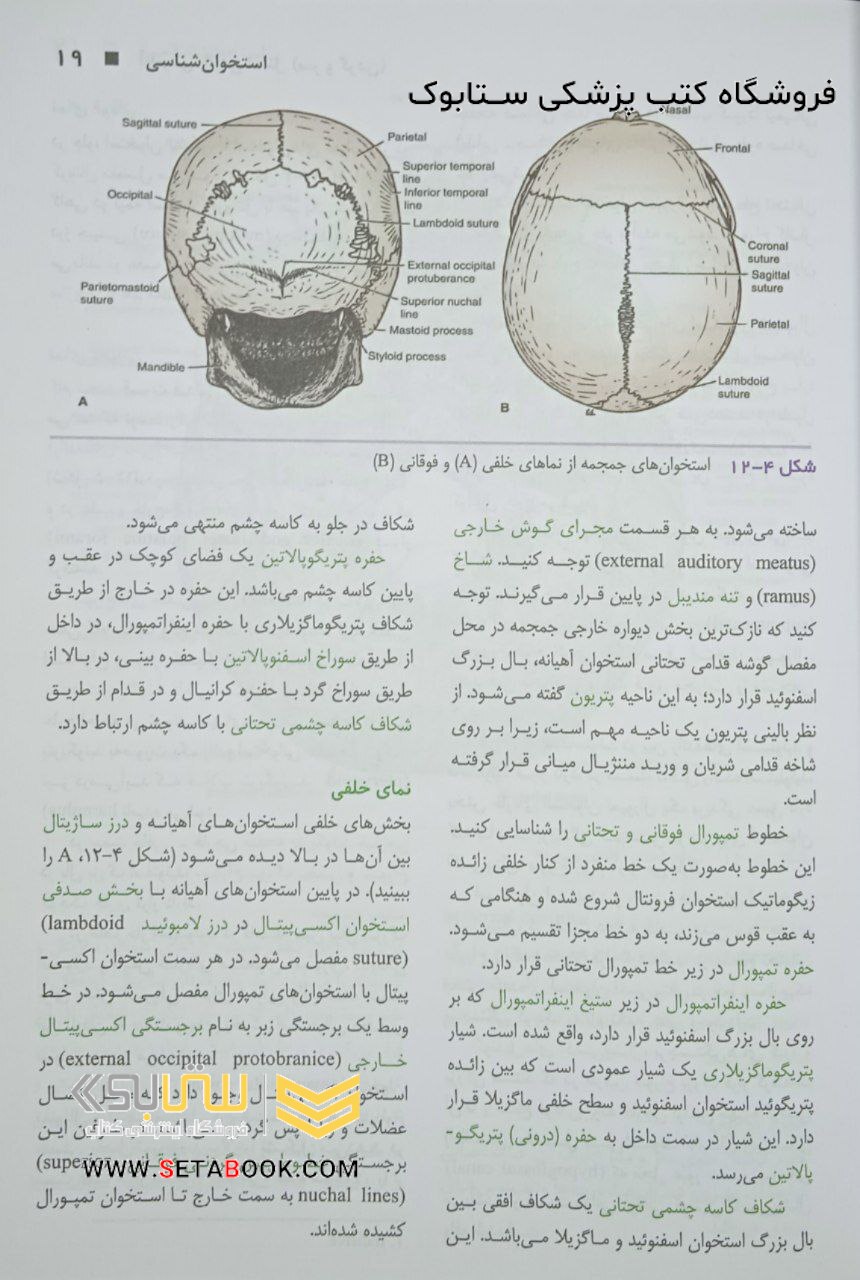 استخوان‌شناسی ■ ۱۹
فروشگاه کتب پزشکی ستابوک
Sagittal suture
Occipital
Parietomastoid
suture
Mandible
A
Parietal
Superior temporal
line
Inferior temporal
line
Lambdoid suture
External occipital
protuberance
Superior nuchal
line
Mastoid process
Styloid process
Nasal
Frontal
Coronal
suture
Sagittal
suture
Parietal
Lambdoid
suture
B
شکل ۴-۱۲ استخوان‌های جمجمه از نماهای خلفی (A) و فوقانی (B)
ساخته می‌شود. به هر قسمت مجرای گوش خارجی
(external auditory meatus) توجه کنید. شاخ
(ramus) و تنه مندیبل در پایین قرار می‌گیرند. توجه
کنید که نازک‌ترین بخش دیواره خارجی جمجمه در محل
مفصل گوشه قدامی تحتانی استخوان آهیانه، بال بزرگ
اسفنوئید قرار دارد؛ به این ناحیه پتریون گفته می‌شود. از
نظر بالینی پتریون یک ناحیه مهم است، زیرا بر روی
شاخه قدامی شریان و ورید مننژیال میانی قرار گرفته
است.
خطوط تمپورال فوقانی و تحتانی را شناسایی کنید.
این خطوط به‌صورت یک خط منفرد از کنار خلفی زائده
زیگوماتیک استخوان فرونتال شروع شده و هنگامی که
به عقب قوس می‌زند، به دو خط مجزا تقسیم می‌شود.
حفره تمپورال در زیر خط تمپورال تحتانی قرار دارد.
حفره اینفراتمپورال در زیر ستیغ اینفراتمپورال که بر
روی بال بزرگ اسفنوئید قرار دارد، واقع شده است. شیار
پتریگوماگزیلاری یک شیار عمودی است که بین زائده
پتریگوئید استخوان اسفنوئید و سطح خلفی ماگزیلا قرار
دارد. این شیار در سمت داخل به حفره (درونی) پتریگو-
پالاتین می‌رسد.
شکاف کاسه چشمی تحتانی یک شکاف افقی بین
بال بزرگ استخوان اسفنوئید و ماگزیلا می‌باشد. این
شکاف در جلو به کاسه چشم منتهی می‌شود.
حفره پتریگوپالاتین یک فضای کوچک در عقب و
پایین کاسه چشم می‌باشد. این حفره در خارج از طریق
شکاف پتریگوماگزیلاری با حفره اینفراتمپورال، در داخل
از طریق سوراخ اسفنوپالاتین با حفره بینی، در بالا از
طریق سوراخ گرد با حفره کرانیال و در قدام از طریق
شکاف کاسه چشمی تحتانی با کاسه چشم ارتباط دارد.
نمای خلفی
بخش‌های خلفی استخوان‌های آهیانه و درز ساژیتال
بین آن‌ها در بالا دیده می‌شود (شکل ۴-۱۲، A را
ببینید). در پایین استخوان‌های آهیانه با بخش صدفی
استخوان اکسی‌پیتال در درز لامبوئید (lambdoid
suture) مفصل می‌شود. در هر سمت استخوان اکسی-
پیتال با استخوان‌های تمپورال مفصل می‌شود. در خط
وسط یک برجستگی زبر به نام برجستگی اکسی‌پیتال
خارجی (external occipital protobranice) در
عضلات و
برجستگی (superior
nuchal lines) به سمت خارج تا استخوان تمپورال
کشیده شده‌اند.
ستابوک
فروشگاه اینترنتی کتاب
WWW.SETABOOK.COM